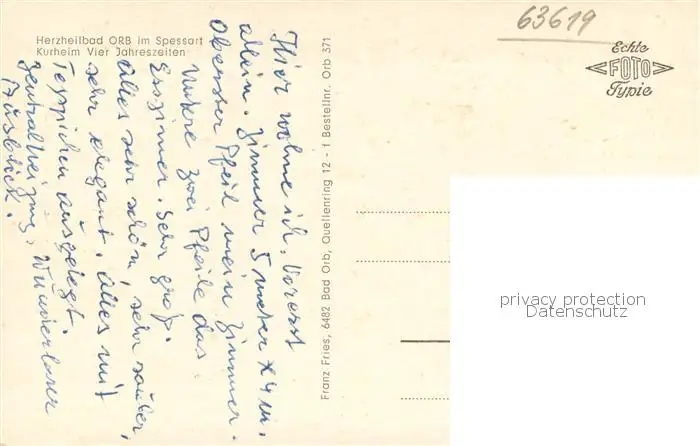 Herzheilbad ORB im Spessart
Kurheim Vier Jahreszeiten
63619
Echte
FOTO
Typie
Hier wohne ich. Vorerst
allein. Zimmer 5 meter x 4 m.
Oberster Pfeil mein Zimmer.
Untere zwei Pfeile das
Esszimer. Sehr groß.
Alles sehr schön, sehr sauber,
sehr elegant. Alles mit
Teppichen ausgelegt.
Zentralheizung. Wunderbarer
Ausblick.
Franz Fries, 6482 Bad Orb, Quellenring 12 - 1 Bestellnr. Orb 371
privacy protection
Datenschutz